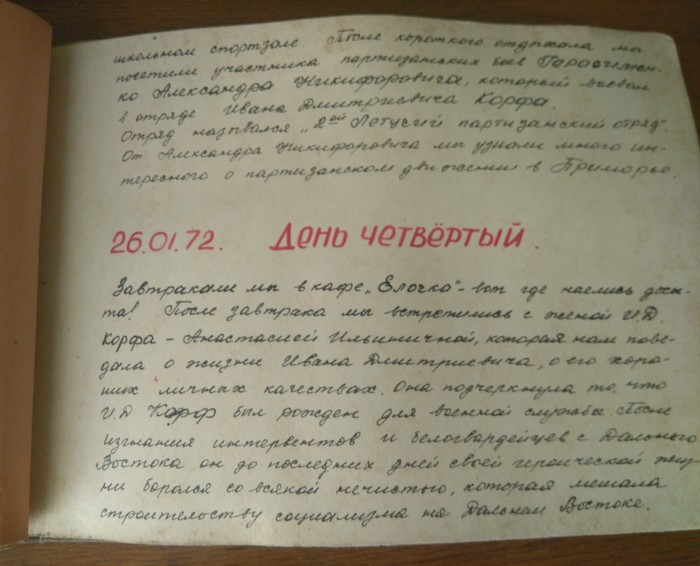 школьном спортзале. После короткого отдыха мы
посетили участника партизанских боев Герасимен-
ко Александра Никифоровича, который воевал
в отряде Ивана Дмитриевича Корфа.
Отряд назывался „2ой Летучий партизанский отряд".
От Александра Никифоровича мы узнали много ин-
тересного о партизанском движении в Приморье.
26.01.72. День четвёртый.
Завтракали мы в кафе „Елочка"- вот где наелись досы-
та! После завтрака мы встретились с женой И.Д.
Корфа – Анастасией Ильиничной, которая нам пове-
дала о жизни Ивана Дмитриевича, о его хоро-
ших личных качествах. Она подчеркнула то, что
И.Д Корф был рожден для военной службы. После
изгнания интервентов и белогвардейцев с Дальнего
Востока он до последних дней своей героической жиз-
ни боролся со всякой нечистью, которая мешала
строительству социализма на Дальнем Востоке.